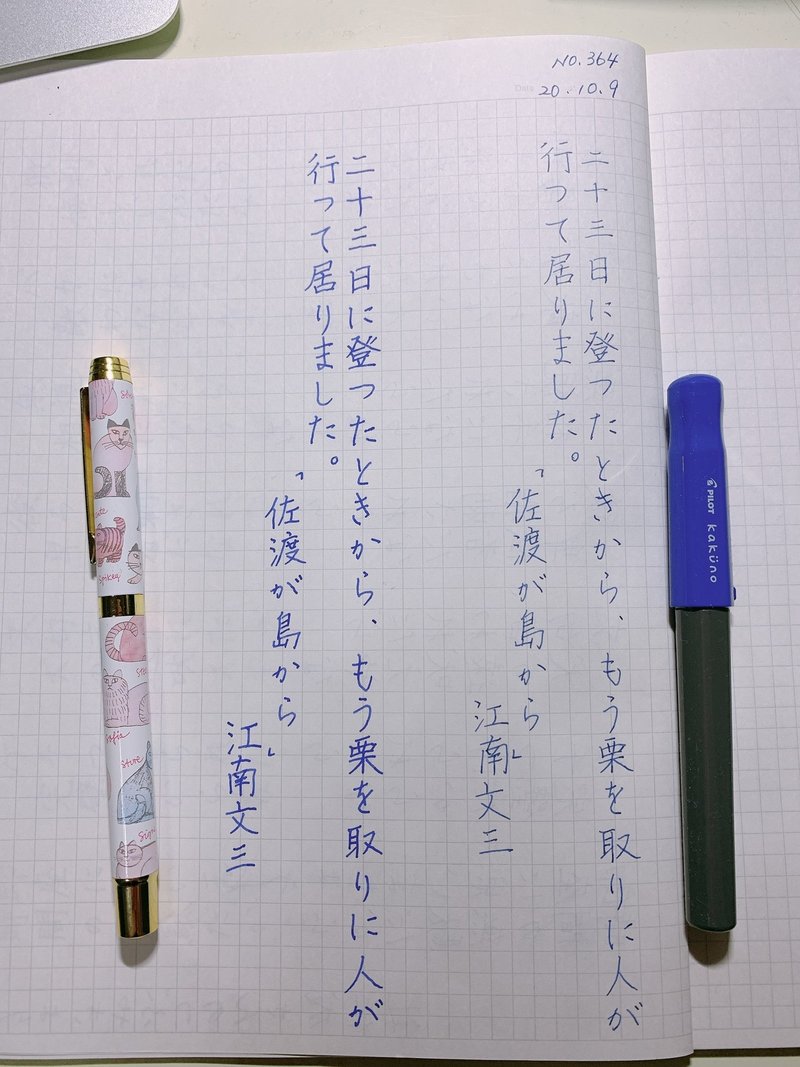 NO.364
Date 20.10.9
二十三日に登つたときから、もう栗を取りに人が
行つて居りました。
「佐渡が島から」
江南文三
二十三日に登つたときから、もう栗を取りに人が
行つて居りました。
「佐渡が島から」
江南文三
PILOT kaküno
Steve